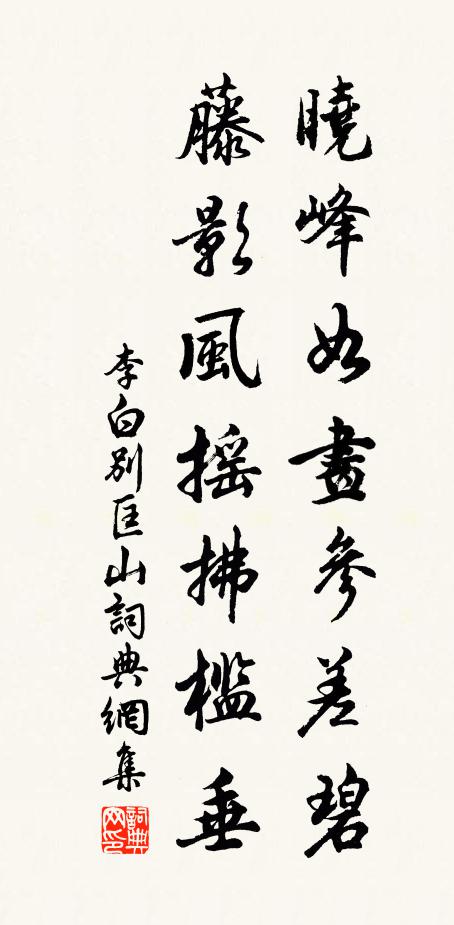 曉峰如畫參差碧
藤影風搖拂檻垂
李白別匡山詞典網集
詞典网印